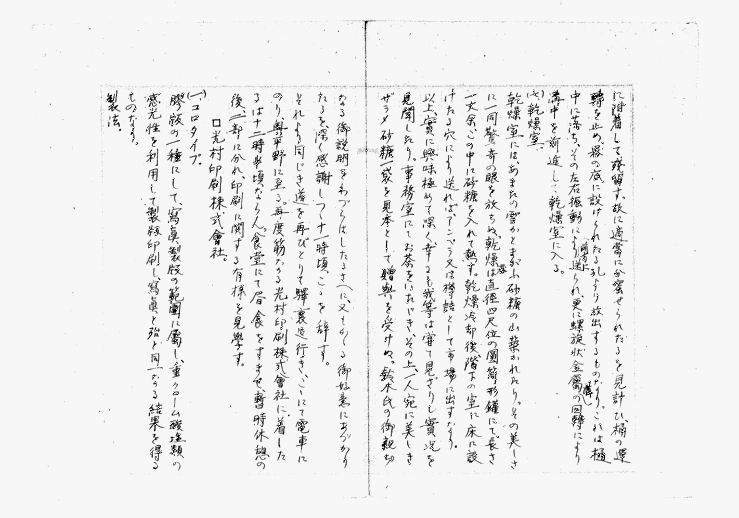 に附着して残留す。故に適當に分蜜せられたるを見計ひ、桶の運
轉を止め、器の底に設けられたる孔より放出するものなり。これは樋
中に落ち、その左右振動により前方に送られ、更に螺旋状金屬の回轉により
溝中を前進し、乾燥室に入る。
乾燥室、
乾燥室には、あまたの雲かとまがふ砂糖の山築かれたり。その美しさ
に一同驚奇の眼を放ちぬ。乾燥は直徑四尺位の圓筒形鑵にて長さ
丈余、この中に砂糖を入れて熱す。乾燥冷却後階下の室に床に設
けたる穴により送ればアンペラ又は樽詰として市場に出すなり。
以上、實に興味極めて深く、幸にも我等は審て見ざりし實況を
見聞したり。事務室にてお茶をいたゞき、その上一人宛に美しき
ザラメ砂糖一袋を見本として贈與を受けぬ。鈴木氏の御親切
なる御説明をわづらはしたるさへに、又もかゝる御好意にあづかり
たるを深く感謝しつゝ十一時頃、こゝを辞す。
それより同じき道を再びとりて驛裏迄行き、こゝにて電車に
のり奥平野に至る。再度筋なる光村印刷株式會社に着した
るは十二時半頃ならん。食堂にて昼食をすませ、暫時休憩の
後、二部に分れ、印刷に関する有様を見學す。
□光村印刷株式會社。
(一)、コロタイプ。
膠版の一種にして、寫真製版の範圍に屬し、重クローム酸塩類の
感光性を利用して製版印刷し、寫真と殆ど同一なる結果を得る
ものなり。
製法。